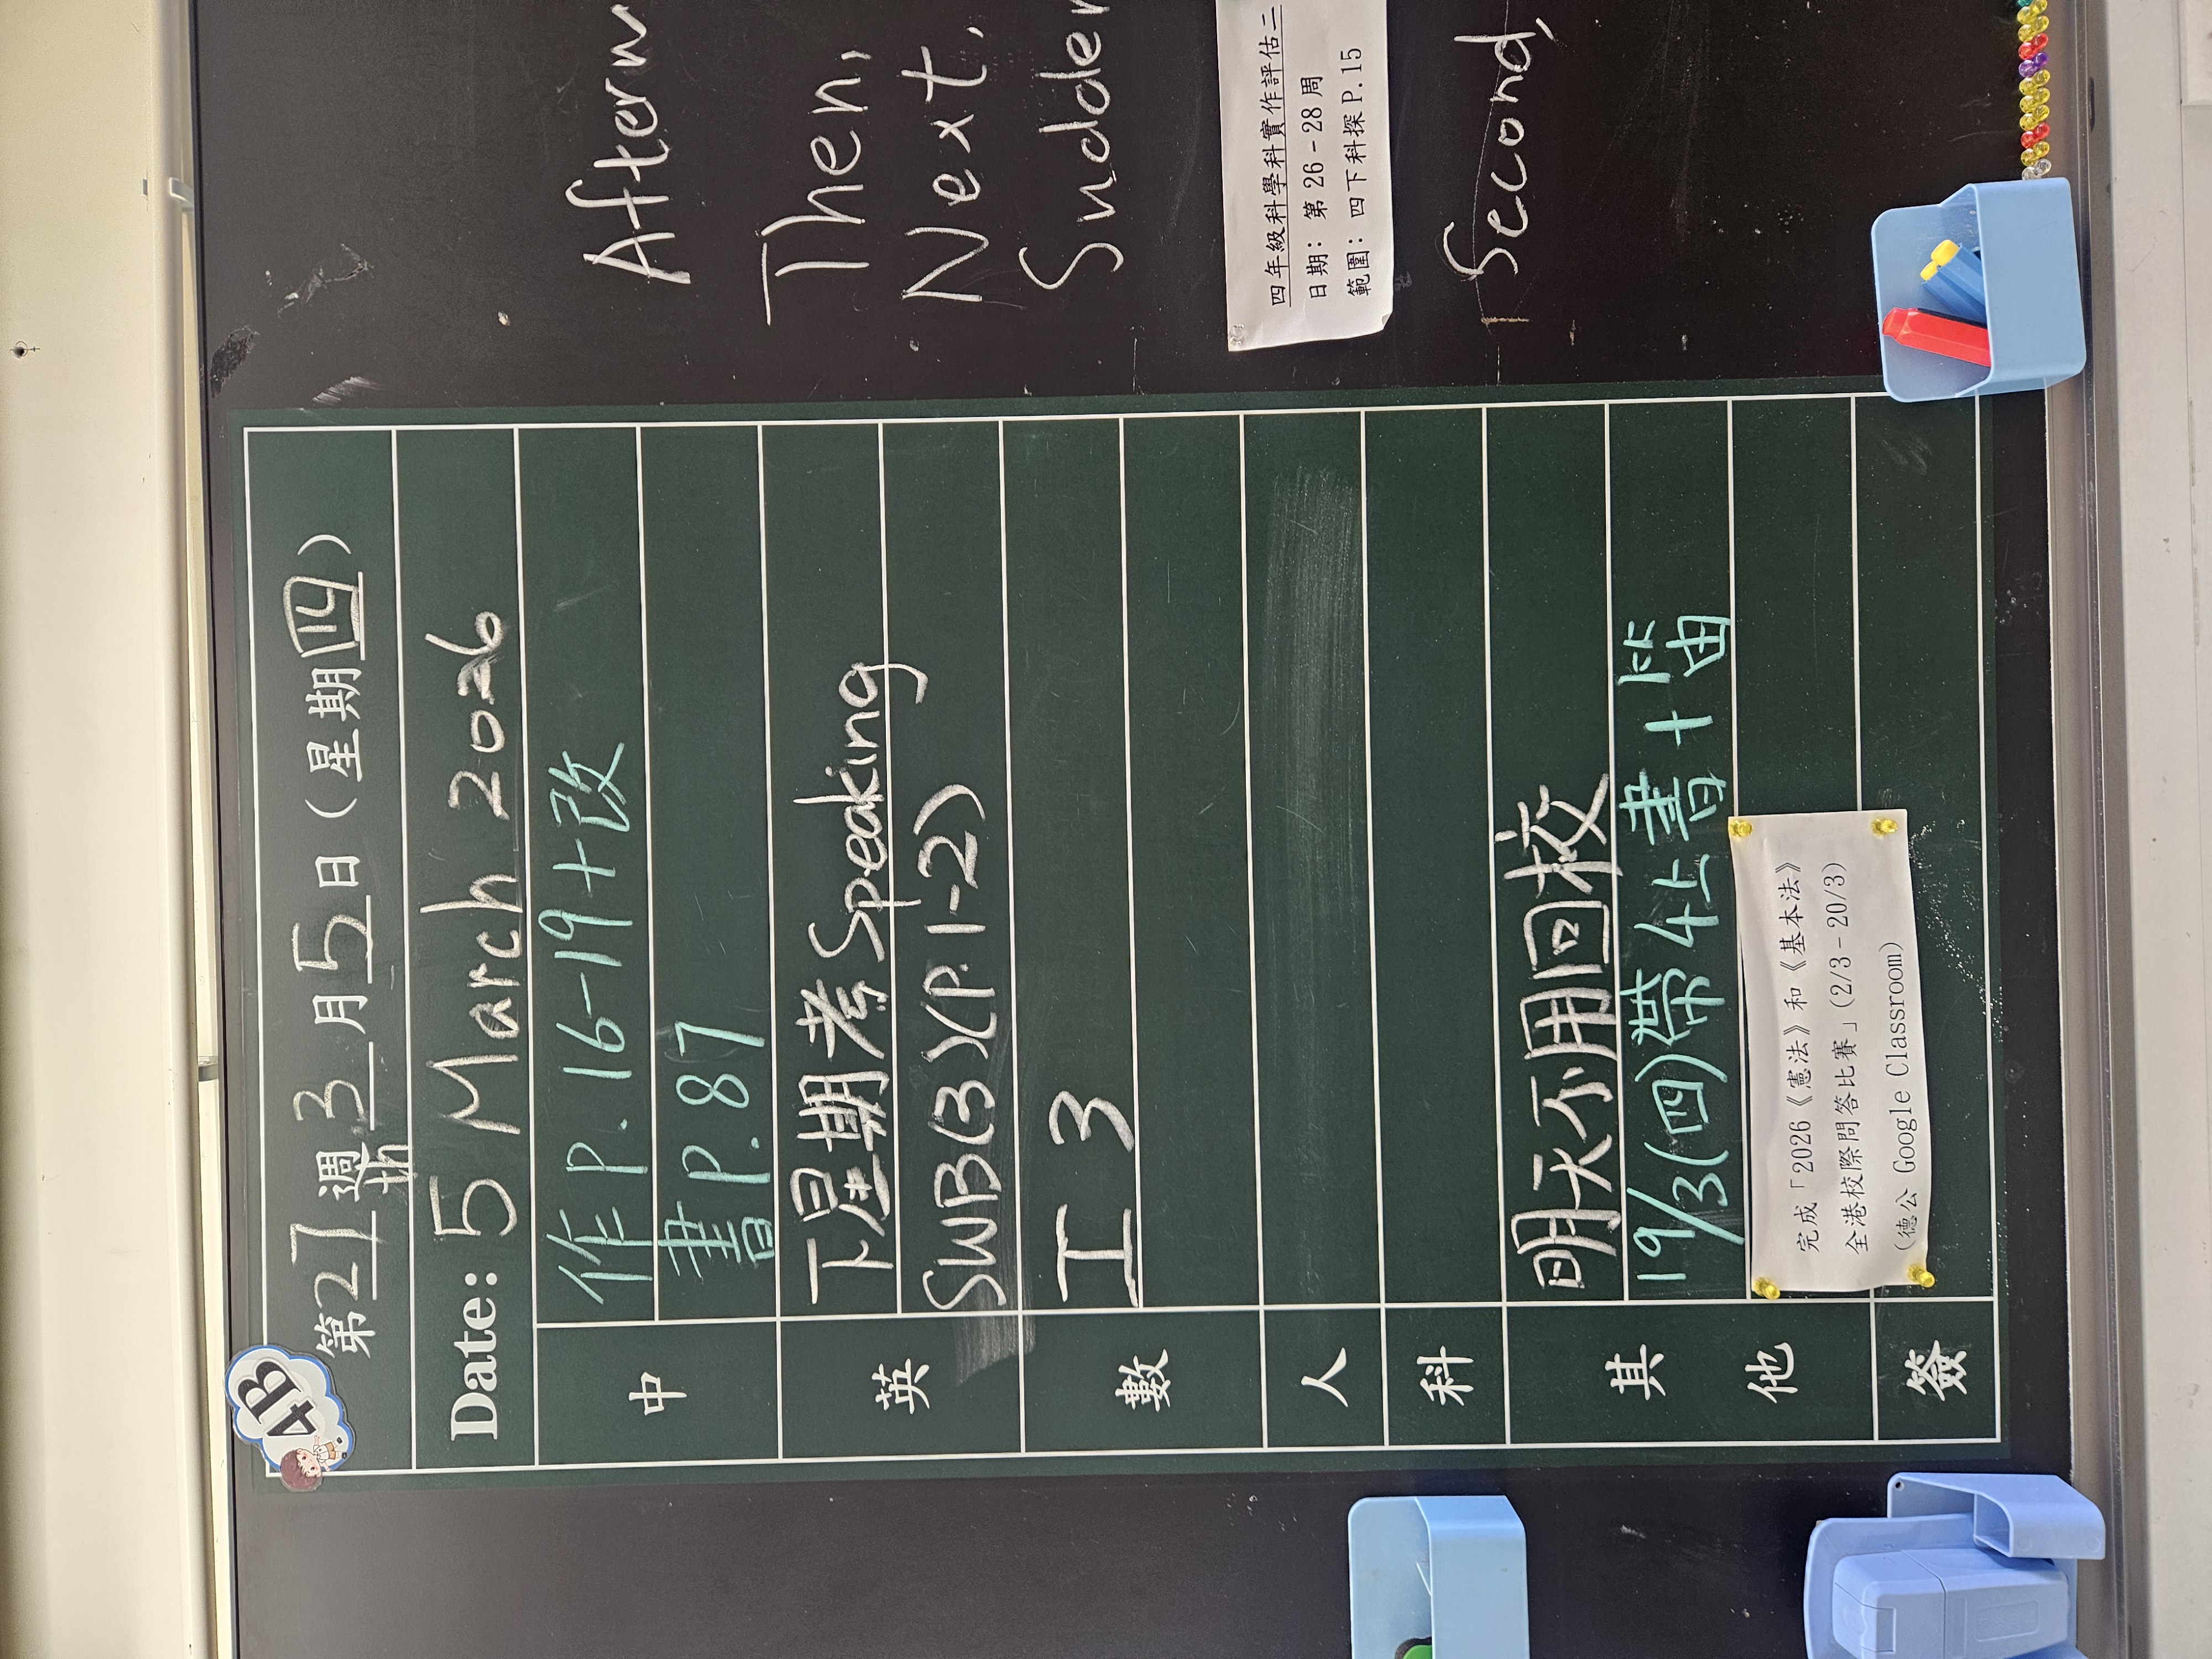 4B
第27週3月5日(星期四)
Date: 5 March 2026
中
作P.16-19+改
書P.87
英
下星期考Speaking
SWB(3)(P.1-2)
數
工3
人
科
其他
明天不用回校
19/3(四)帶4上書+笛
完成「2026《憲法》和《基本法》
全港校際問答比賽」(2/3-20/3)
(德公 Google Classroom)
簽
Then,
Next,
四年級科學科實作評估二
日期：第 26-28周
範圍：四下科探P.15
Second,